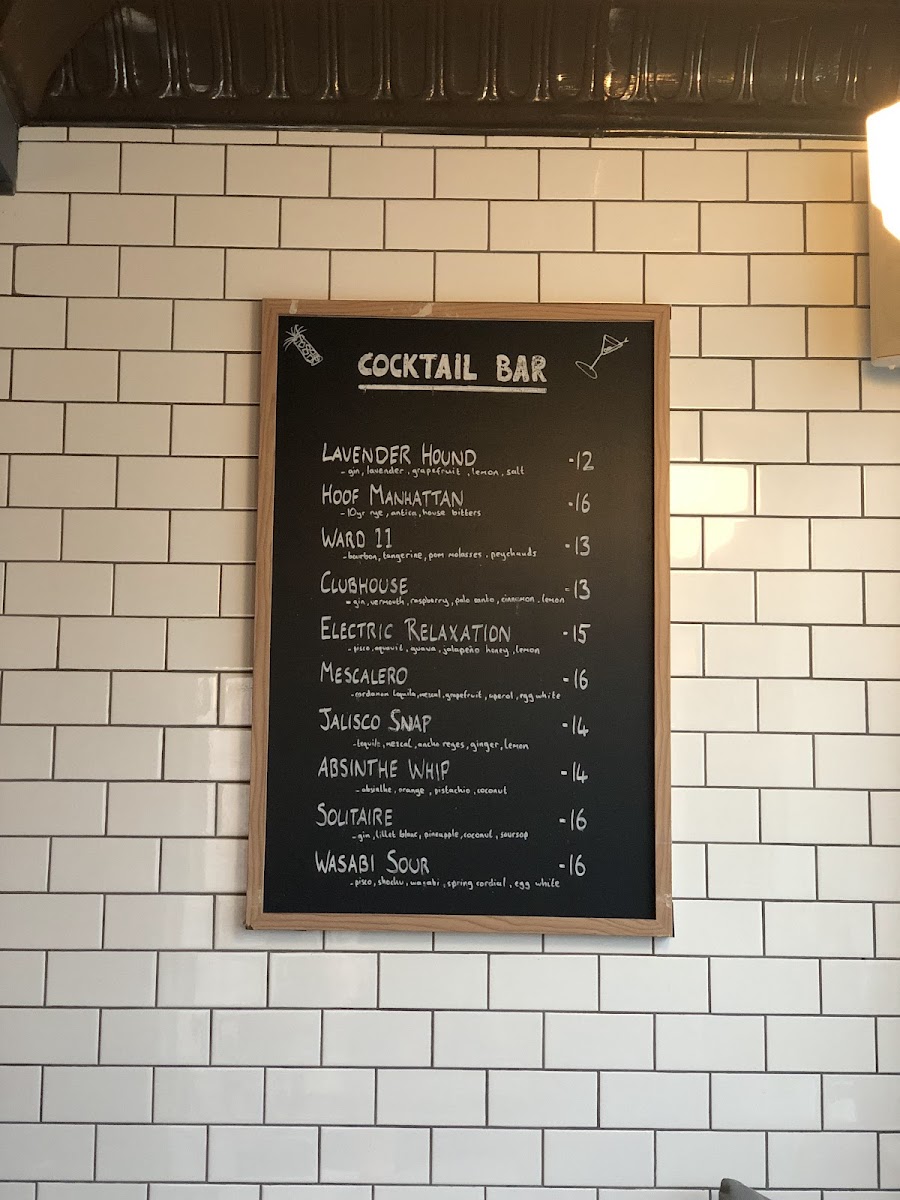 COCKTAIL BAR
LAVENDER HOUND -12
- gin, lavender, grapefruit, lemon, salt
HOOF MANHATTAN -16
- 10yr rye, antica, house bitters
WARD 11 -13
- bourbon, tangerine, pom molasses, peychauds
CLUBHOUSE -13
- gin, vermouth, raspberry, palo santo, cinnamon, lemon
ELECTRIC RELAXATION -15
- pisco, aquavit, guava, jalapeño honey, lemon
MESCALERO -16
- cardamon tequila, mescal, grapefruit, aperol, egg white
JALISCO SNAP -14
- tequila, mescal, ancho reyes, ginger, lemon
ABSINTHE WHIP -14
- absinthe, orange, pistachio, coconut
SOLITAIRE -16
- gin, lillet blanc, pineapple, coconut, soursop
WASABI SOUR -16
- pisco, shochu, wasabi, spring cordial, egg white